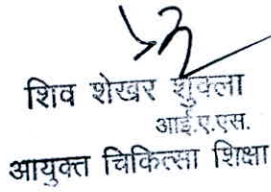 शिव शेखर शुक्ला
आई.ए.एस.
आयुक्त चिकित्सा शिक्षा